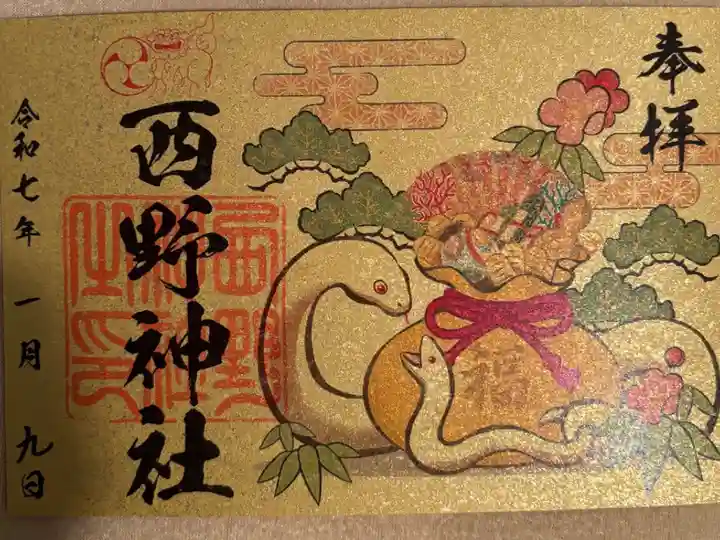 奉拝
西野神社
西野神社之印
福
令和七年 一月 九日